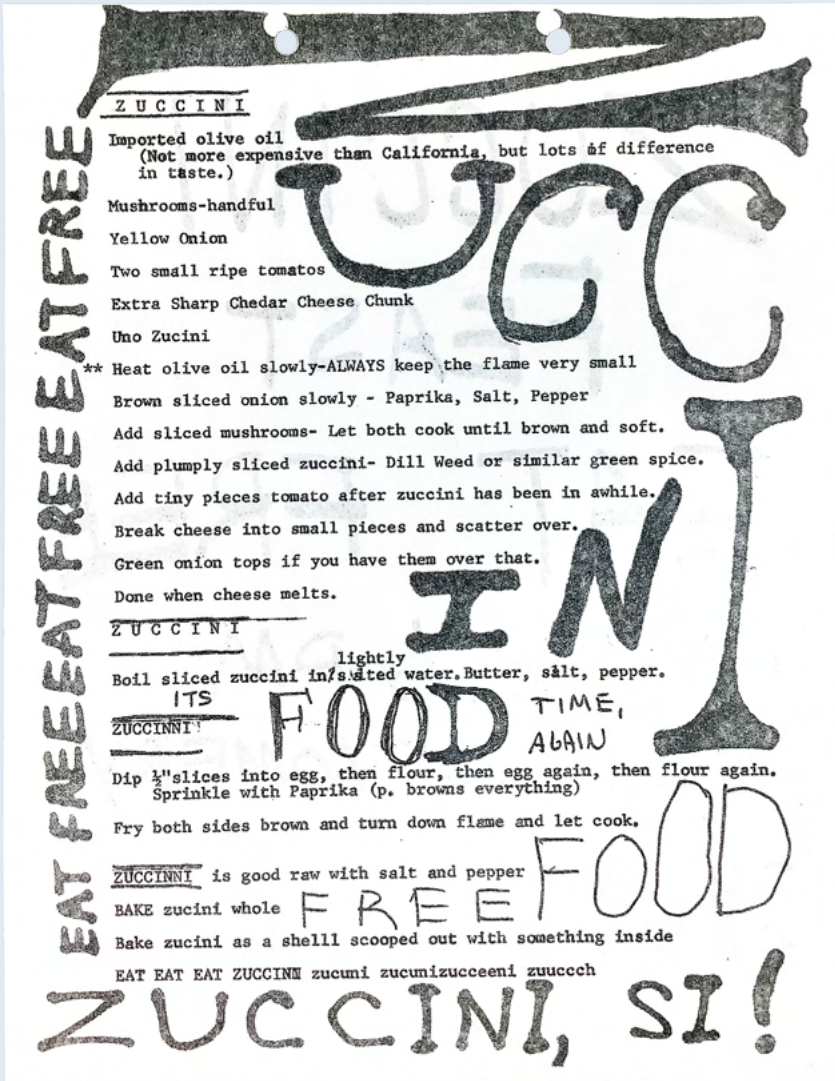 ZUCCINI
Z U C C I N I
Imported olive oil
(Not more expensive than California, but lots of difference
in taste.)
Mushrooms-handful
Yellow Onion
Two small ripe tomatos
Extra Sharp Chedar Cheese Chunk
Uno Zucini
** Heat olive oil slowly-ALWAYS keep the flame very small
Brown sliced onion slowly - Paprika, Salt, Pepper
Add sliced mushrooms- Let both cook until brown and soft.
Add plumply sliced zuccini- Dill Weed or similar green spice.
Add tiny pieces tomato after zuccini has been in awhile.
Break cheese into small pieces and scatter over.
Green onion tops if you have them over that.
Done when cheese melts.
IN
Z U C C I N I
lightly
Boil sliced zuccini in/salted water. Butter, salt, pepper.
ITS FOOD TIME,
AGAIN
ZUCCINNI
Dip ½"slices into egg, then flour, then egg again, then flour again.
Sprinkle with Paprika (p. browns everything)
Fry both sides brown and turn down flame and let cook.
ZUCCINNI is good raw with salt and pepper
FREE FOOD
BAKE zucini whole
Bake zucini as a shelll scooped out with something inside
EAT EAT EAT ZUCCINI zucuni zucunizucceeni zuuccch
ZUCCINI, SI!
EAT FREE EAT FREE EAT FREE EAT FREE